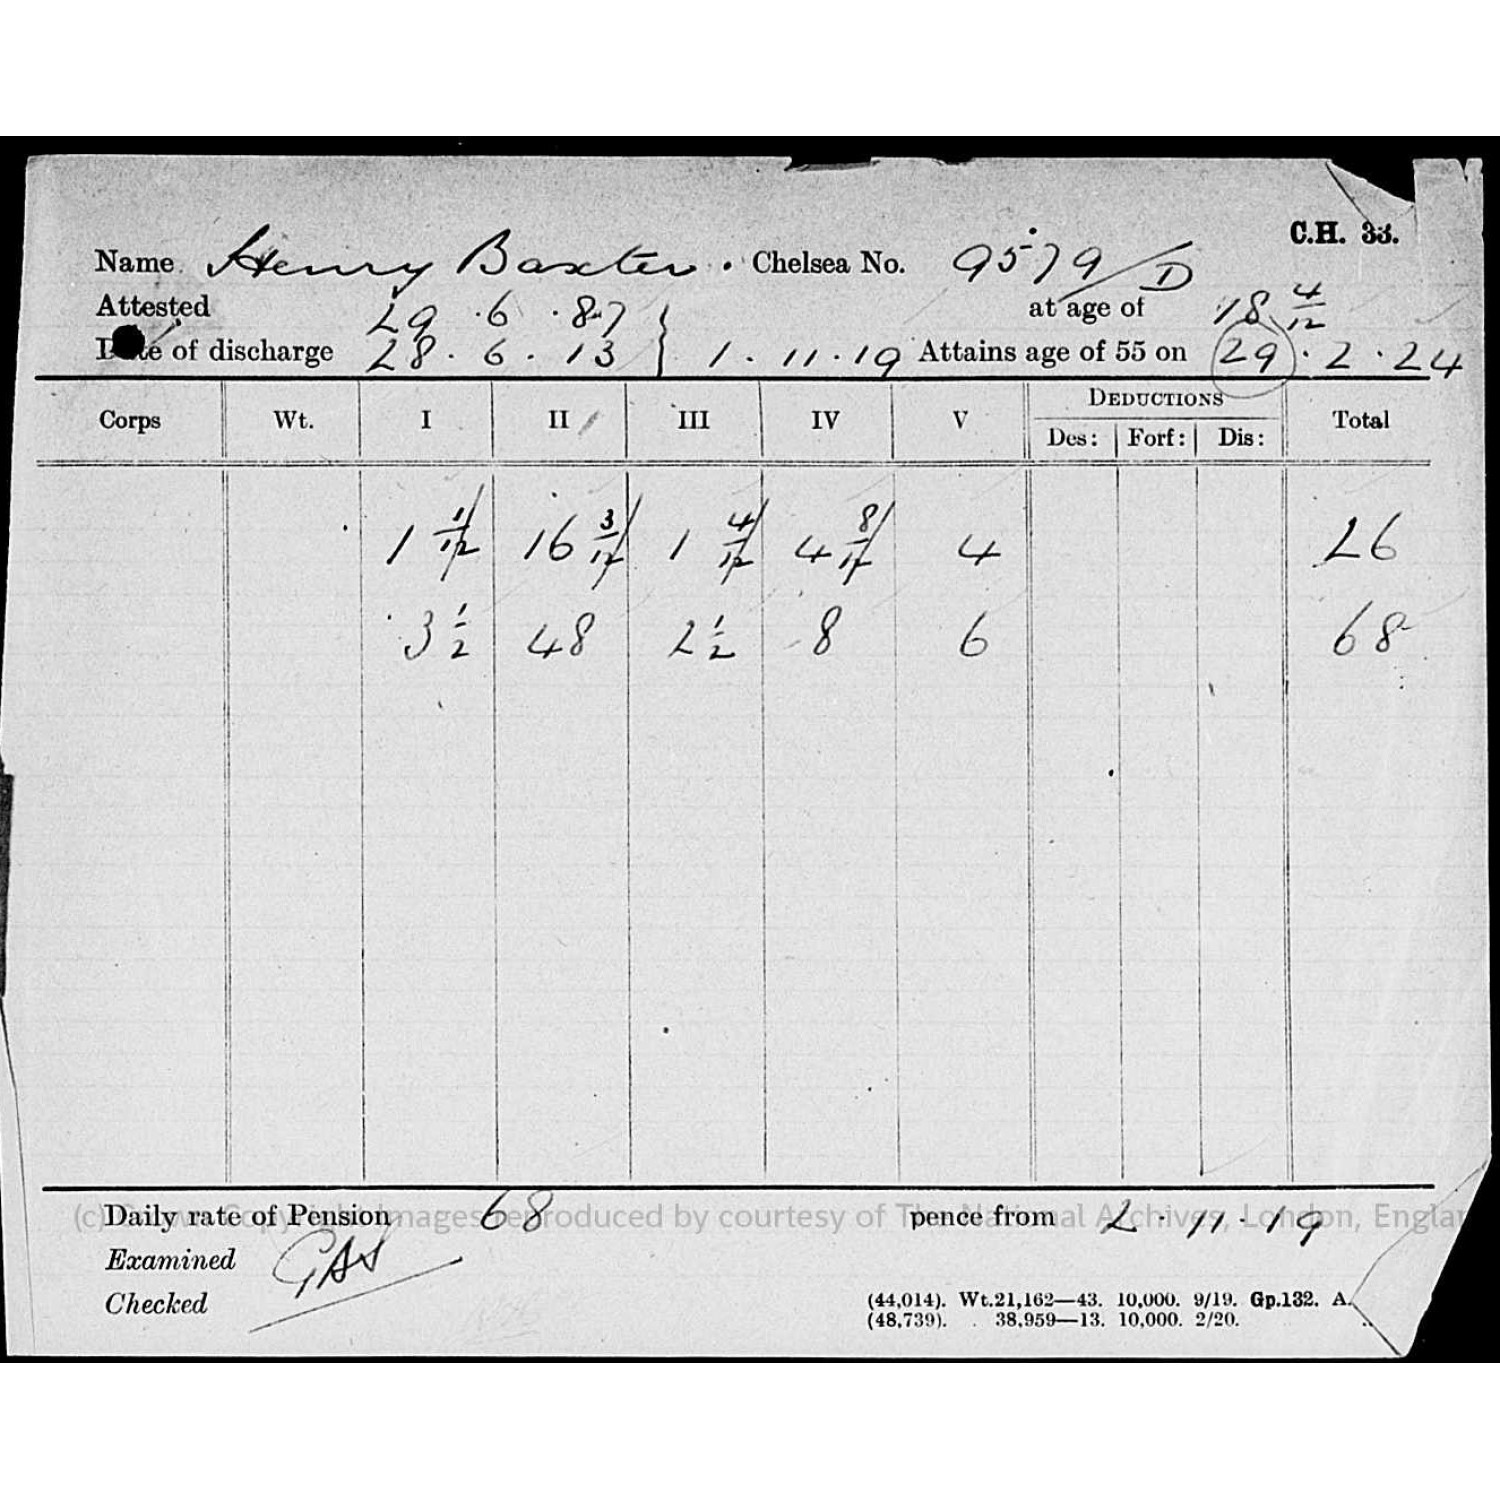 C.H. 33.
Name Henry Baxter. Chelsea No. 9579/D
Attested 29.6.87 at age of 18 4/12
Date of discharge 28.6.13 } 1.11.19 Attains age of 55 on 29.2.24
Corps Wt. I II III IV V DEDUCTIONS Total
Des: Forf: Dis:
1 1/12 16 3/12 1 4/12 4 8/12 4 26
3 1/2 48 2 1/2 8 6 68
Daily rate of Pension 68 pence from 2.11.19
(c) Crown Copyright Images reproduced by courtesy of The National Archives, London, Englan
Examined GAS
Checked
(44,014). Wt.21,162—43. 10,000. 9/19. Gp.132. A.
(48,739). 38,959—13. 10,000. 2/20.